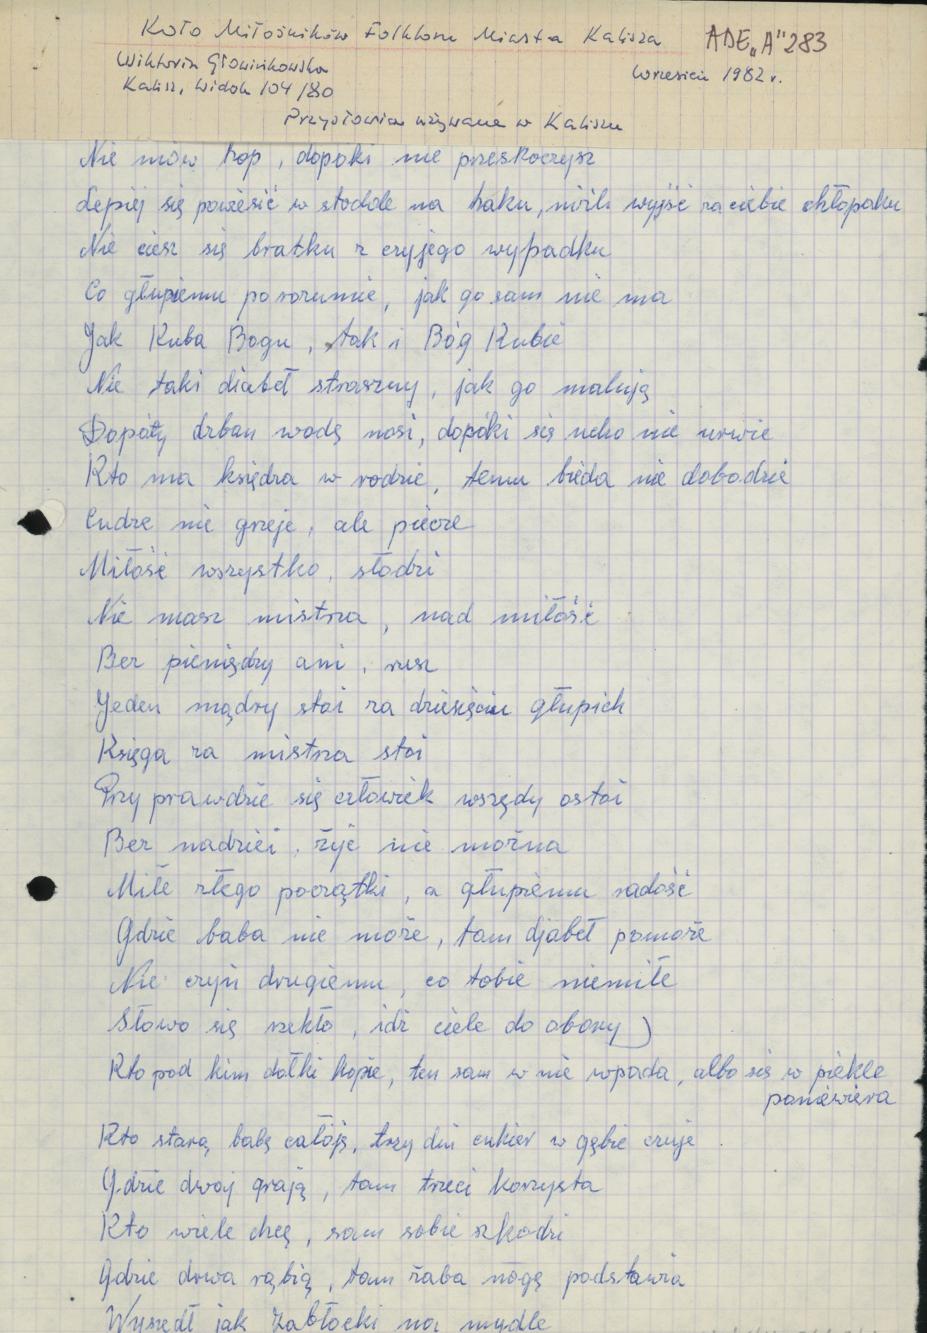 Koło Miłośników Folkloru Miasta Kalisza ADE „A" 283
Wiktoria Głowinkowska wrzesień 1982 r.
Kalisz, Widok 104/80
Przysłowia używane w Kaliszu
Nie mów hop, dopoki nie przeskoczysz
Lepiej się powiesić w stodole na haku, niżli wyjść za ciebie chłopaku
Nie ciesz się bratku z czyjego wypadku
Co głupiemu po rozumie, jak go sam nie ma
Jak Kuba Bogu, tak i Bóg Kubie
Nie taki diabeł straszny, jak go malują
Dopóty dzban wodę nosi, dopóki się ucho nie urwie
Kto ma księdza w rodzie, temu bieda nie dobodzie
Cudze nie grzeje, ale piecze
Miłość wszystko, słodzi
Nie masz mistrza, nad miłość
Bez pieniędzy ani, rusz
Jeden mądry stoi za dziesięciu głupich
Księga za mistrza stoi
Przy prawdzie się człowiek wszędy ostoi
Bez nadziei, żyć nie można
Miłe złego początki, a głupiemu radość
Gdzie baba nie może, tam djabeł pomoże
Nie czyń drugiemu, co tobie niemiłe
Słowo się rzekło, idź ciele do obory)
Kto pod kim dołki kopie, ten sam w nie wpada, albo się w piekle
poniewiera
Kto starą babę całóje, trzy dni cukier w gębie czuje
Gdzie dwoj grają, tam trzeci korzysta
Kto wiele chcę, sam sobie szkodzi
Gdzie drwa rąbią, tam żaba nogę podstawia
Wyszedł jak Zabłocki na mydle